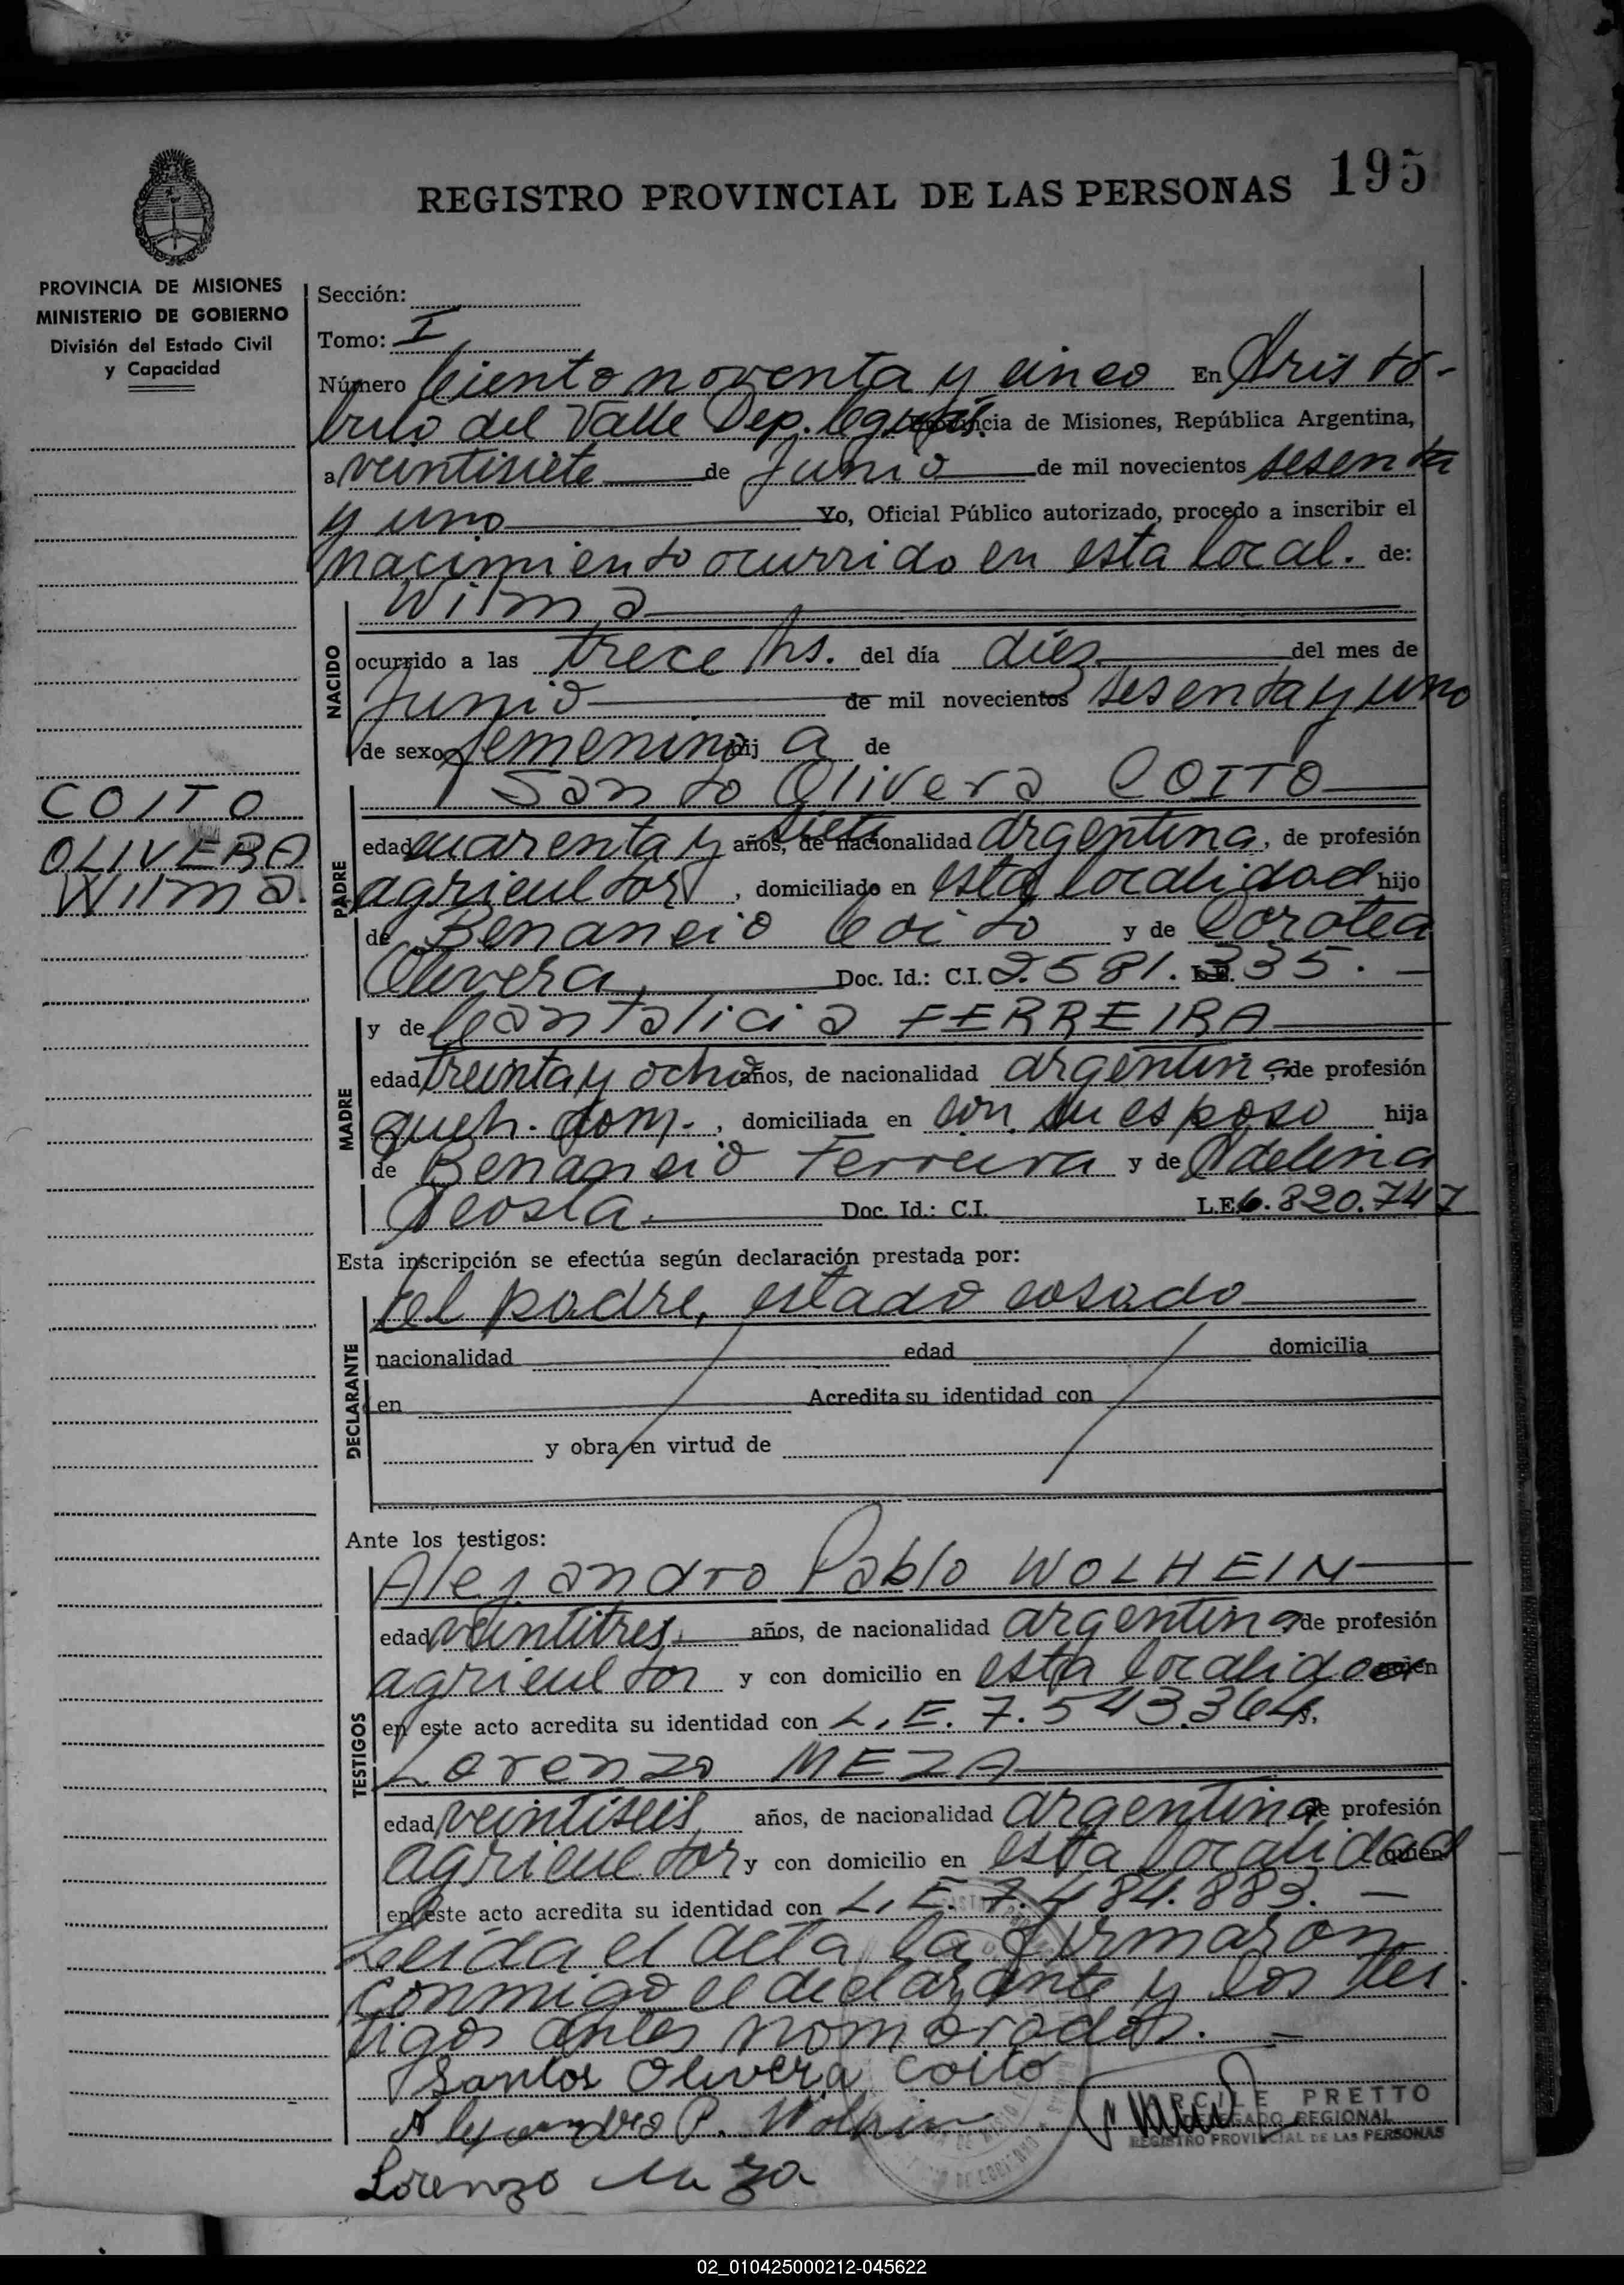 195
REGISTRO PROVINCIAL DE LAS PERSONAS
PROVINCIA DE MISIONES
MINISTERIO DE GOBIERNO
División del Estado Civil
y Capacidad
COITO
OLIVERA
Wilma.
Sección:
Tomo: I
Número Ciento noventa y cinco En Aristó-
bulo del Valle Dep. Cgüás. Provincia de Misiones, República Argentina,
a veintisiete de Junio de mil novecientos sesenta
y uno Yo, Oficial Público autorizado, procedo a inscribir el
nacimiento ocurrido en esta local. de:
NACIDO
Wilma
ocurrido a las trece hs. del día diez del mes de
Junio de mil novecientos sesenta y uno
de sexo femenino hij a de
PADRE
Santo Olivera COITO
edad cuarenta y siete años, de nacionalidad argentina, de profesión
agricultor, domiciliado en esta localidad hijo
de Benancio Coito y de Dorotea
Olivera Doc. Id.: C.I. 2.581.335.
MADRE
y de Cantalicia FERREIRA
edad treinta y ocho años, de nacionalidad argentina de profesión
queh. dom., domiciliada en con su esposo hija
de Benancio Ferreira y de Adelina
Acosta. Doc. Id.: C.I. L.E. 6.820.747
Esta inscripción se efectúa según declaración prestada por:
DECLARANTE
el padre, estado casado
nacionalidad edad domicilia
en Acredita su identidad con
y obra en virtud de
Ante los testigos:
TESTIGOS
Alejandro Pablo WOLHEIN
edad veintitres años, de nacionalidad argentina de profesión
agricultor y con domicilio en esta localidad quien
en este acto acredita su identidad con L.E. 7.543.364.
Lorenzo MEZA
edad veintiseis años, de nacionalidad argentina de profesión
agricultor y con domicilio en esta localidad quien
en este acto acredita su identidad con L.E. 7.484.883.
Leída el acta la firmaron
conmigo el declarante y los tes
tigos antes nombrados.
Santos Olivera Coito
Alejandro P. Wolhein
PRETTO
DELEGADO REGIONAL
REGISTRO PROVINCIAL DE LAS PERSONAS
Lorenzo Meza
02_010425000212-045622